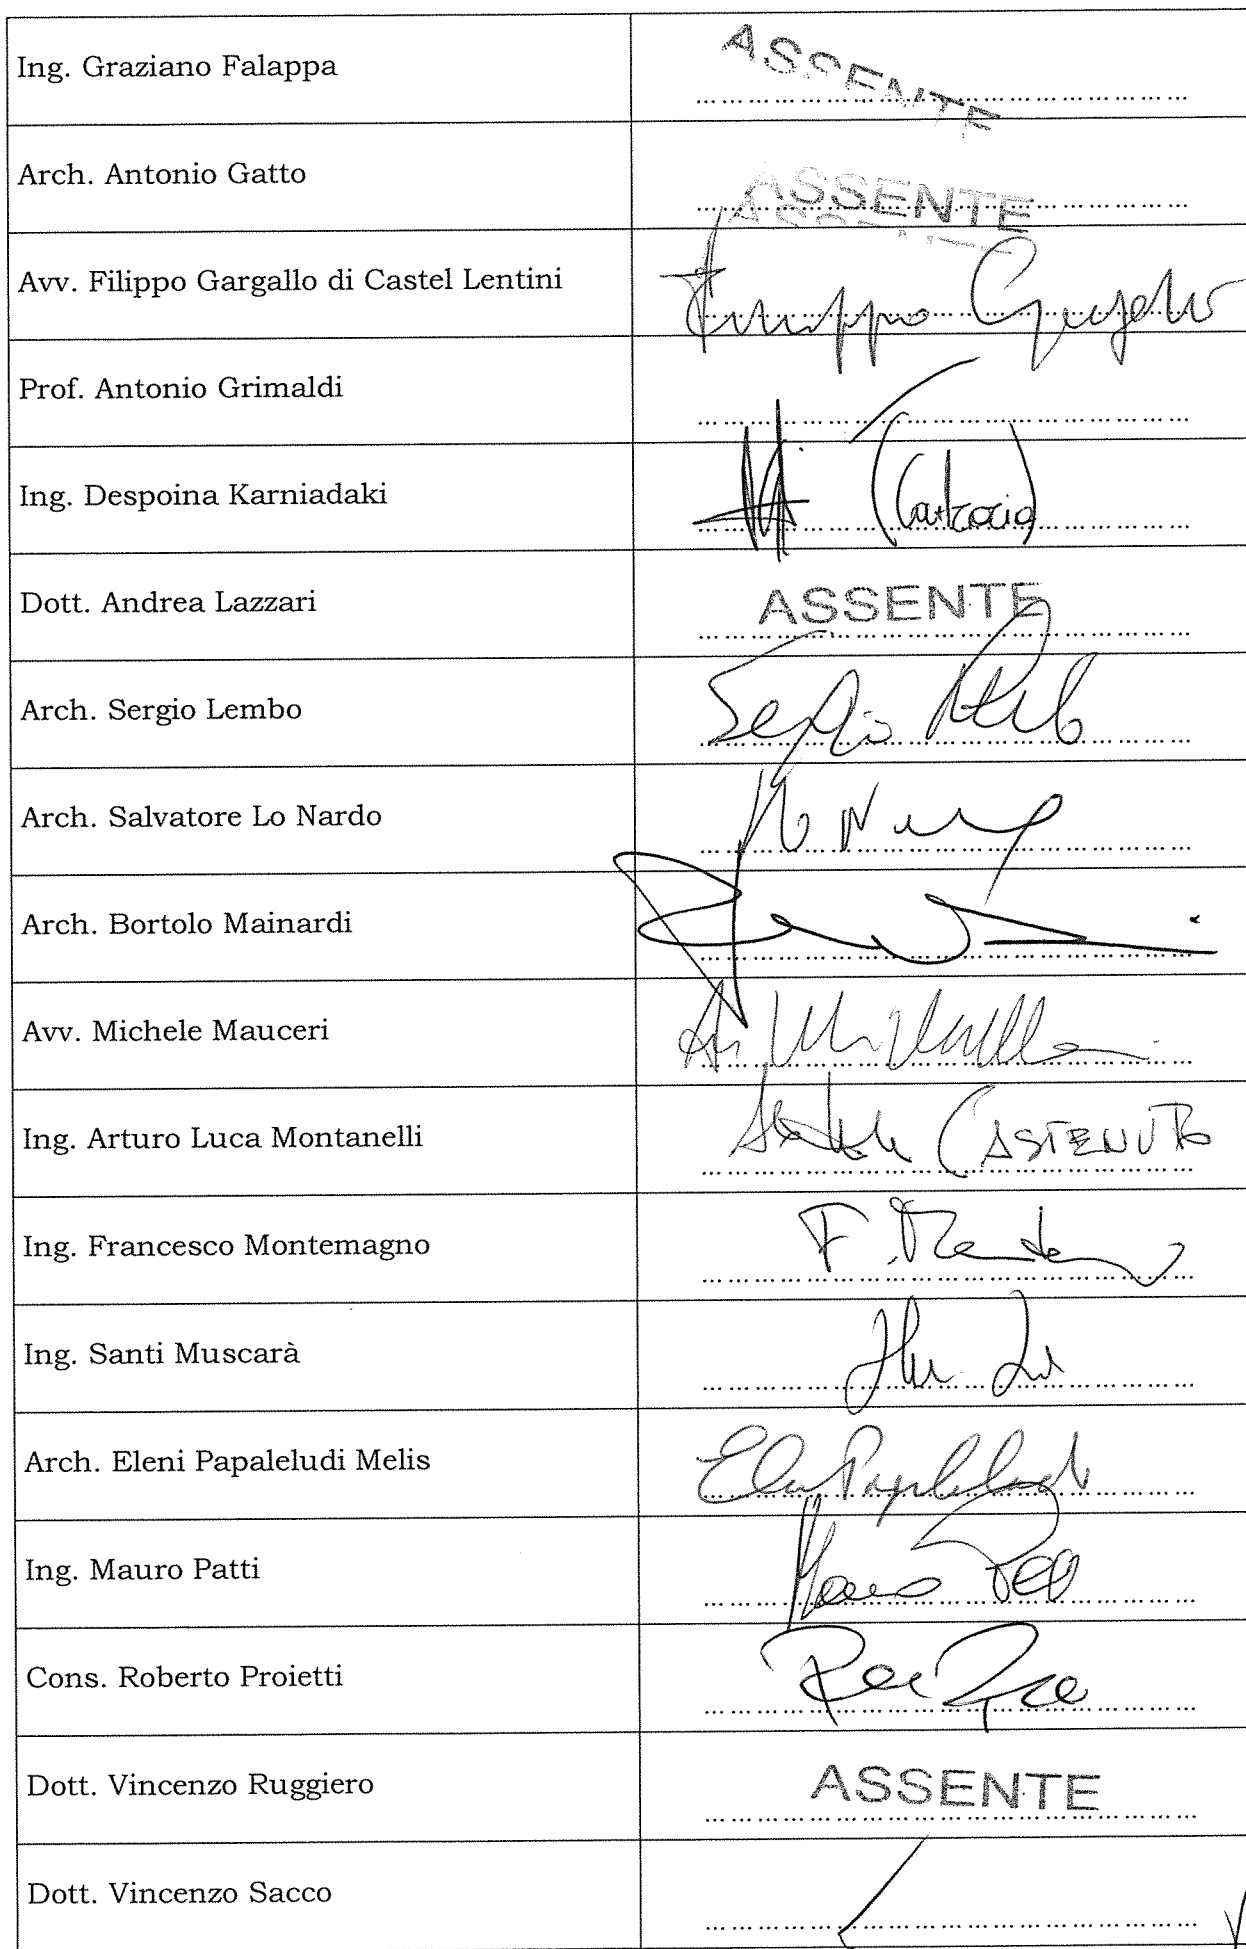 Ing. Graziano Falappa
ASSENTE
Arch. Antonio Gatto
ASSENTE
Avv. Filippo Gargallo di Castel Lentini
Filippo Gargallo
Prof. Antonio Grimaldi
Ing. Despoina Karniadaki
Dott. Andrea Lazzari
ASSENTE
Arch. Sergio Lembo
Sergio
Arch. Salvatore Lo Nardo
Lo Nardo
Arch. Bortolo Mainardi
Avv. Michele Mauceri
Ing. Arturo Luca Montanelli
(ASTENUTO
Ing. Francesco Montemagno
F.
Ing. Santi Muscarà
Arch. Eleni Papaleludi Melis
Ing. Mauro Patti
Mauro
Cons. Roberto Proietti
Dott. Vincenzo Ruggiero
ASSENTE
Dott. Vincenzo Sacco